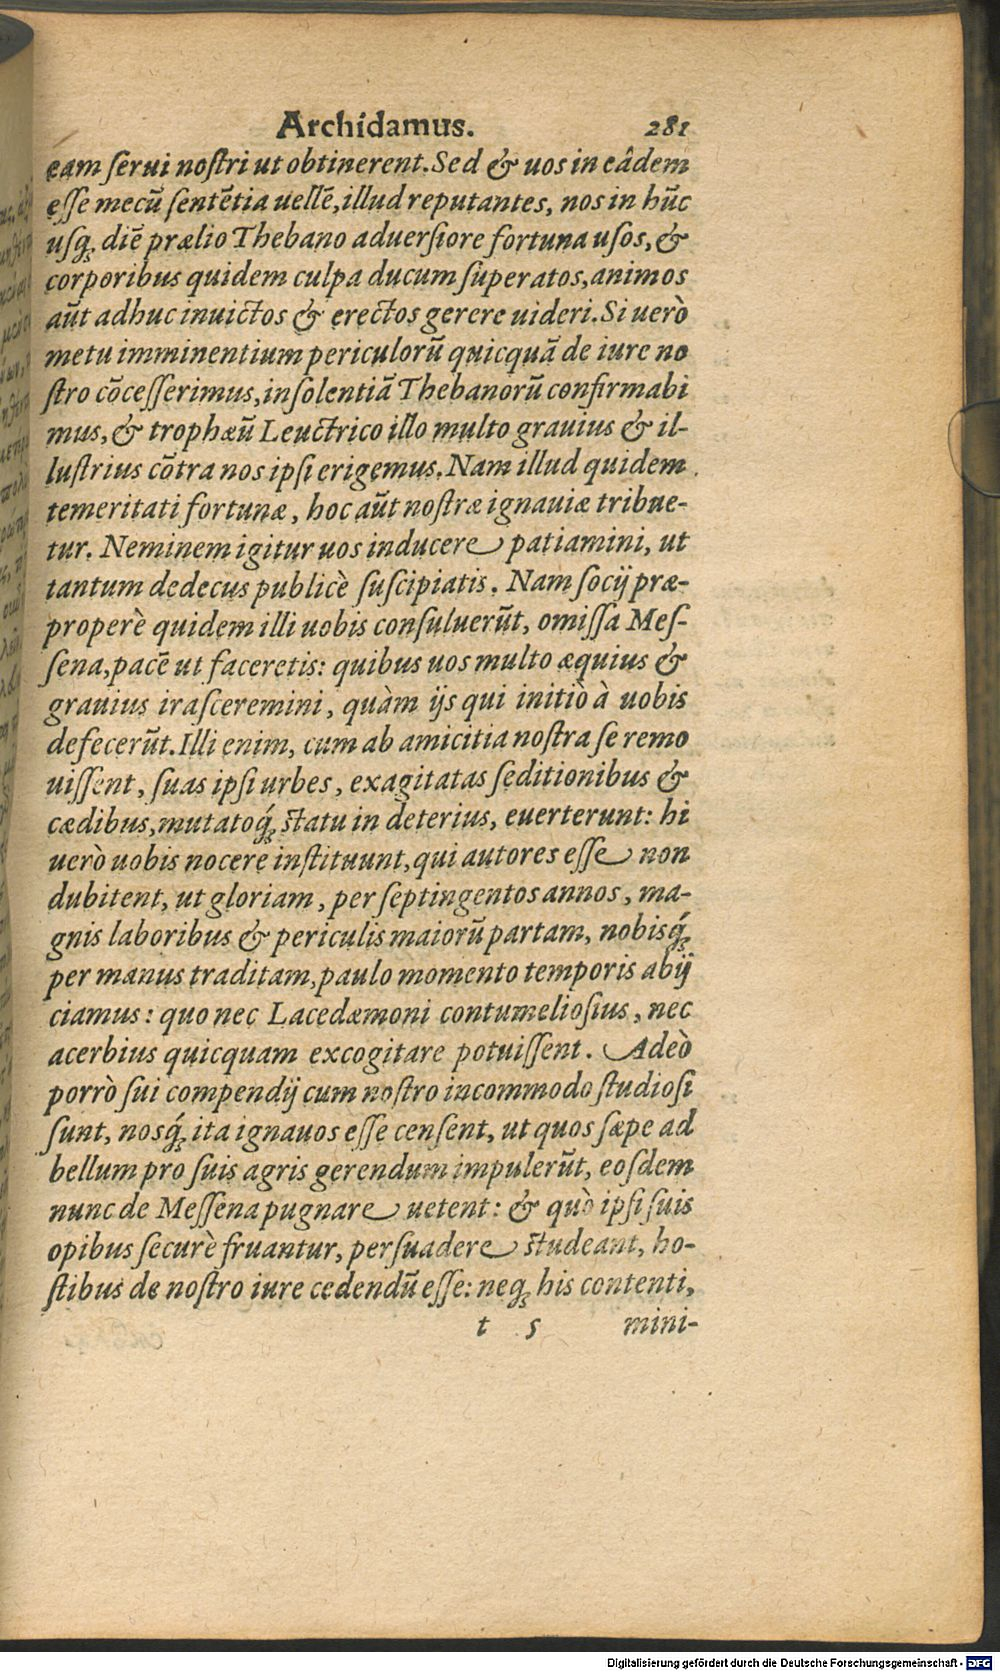 Archidamus. 281
eam ſerui noſtri ut obtinerent. Sed & uos in eâdem
eſſe mecũ ſentẽtia uellẽ, illud reputantes, nos in hũc
uſq; diẽ prælio Thebano aduerſiore fortuna uſos, &
corporibus quidem culpa ducum ſuperatos, animos
aũt adhuc inuictos & erectos gerere uideri. Si uerò
metu imminentium periculorũ quicquã de iure no
ſtro cõceſſerimus, inſolentiã Thebanorũ confirmabi
mus, & trophæũ Leuctrico illo multo grauius & il-
luſtrius cõtra nos ipſi erigemus. Nam illud quidem
temeritati fortunæ, hoc aũt noſtræ ignauiæ tribue-
tur. Neminem igitur uos inducere patiamini, ut
tantum dedecus publicè ſuſcipiatis. Nam ſocij præ-
properè quidem illi uobis conſuluerũt, omiſſa Meſ-
ſena, pacẽ ut faceretis: quibus uos multo æquius &
grauius iraſceremini, quàm ijs qui initiò à uobis
defecerũt. Illi enim, cum ab amicitia noſtra ſe remo
uiſſent, ſuas ipſi urbes, exagitatas ſeditionibus &
cædibus, mutatoq́; ſtatu in deterius, euerterunt: hi
uerò uobis nocere inſtituunt, qui autores eſſe non
dubitent, ut gloriam, per ſeptingentos annos, ma-
gnis laboribus & periculis maiorũ partam, nobisq́;
per manus traditam, paulo momento temporis abij
ciamus: quo nec Lacedæmoni contumelioſius, nec
acerbius quicquam excogitare potuiſſent. Adeò
porrò ſui compendij cum noſtro incommodo ſtudioſi
ſunt, nosq́; ita ignauos eſſe cenſent, ut quos ſæpe ad
bellum pro ſuis agris gerendum impulerũt, eoſdem
nunc de Meſſena pugnare uetent: & quò ipſi ſuis
opibus ſecurè fruantur, perſuadere ſtudeant, ho-
ſtibus de noſtro iure cedendũ eſſe: neq; his contenti,
t 5 mini-
Digitalisierung gefördert durch die Deutsche Forschungsgemeinschaft - DFG